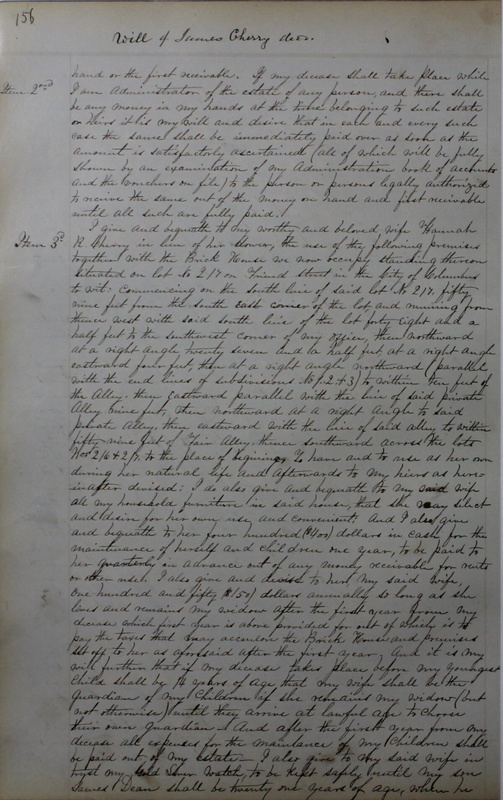 156
Will of James Cherry decd.
hand or the first receivable. If my decease shall take place while
Item 2nd I am Administrator of the estate of any person, and there shall
be any money in my hands at the time belonging to such estate
or heirs it is my will and desire that in each and every such
case the same shall be immediately paid over as soon as the
amount is satisfactorily ascertained (all of which will be fully
shown by an examination of my Administration book of accounts
and the vouchers on file) to the person or persons legally authorized
to receive the same out of the money on hand and first receivable
until all such are fully paid.
Item 3d I give and bequeath to my worthy and beloved wife Hannah
R. Cherry in lieu of her dower, the use of the following premises
together with the Brick House we now occupy standing thereon
situated on lot No 217 on Friend street in the City of Columbus
to wit: Commencing on the south line of said lot No 217. fifty
nine feet from the south east corner of the lot and running from
thence west with said south line of the lot forty eight and a
half feet to the southwest corner of my office, then northward
at a right angle twenty seven and a half feet at a right angle
eastward four feet, then at a right angle northward (parallel
with the end lines of subdivisions No 1. 2 & 3) to within ten feet of
the Alley. then Eastward parallel with the line of said private
Alley nine feet, then northward at a right angle to said
private Alley, then eastward with the line of said alley to within
fifty nine feet of Fair Alley thence southward across the lots
Nos 216 & 217. to the place of begining To have and to use as her own
during her natural life and afterwards to my hiers as here-
inafter devised: I do also give and bequeath to my said wife
all my household furniture in said house, that she may select
and desire for her own use, and convenient. And I also give
and bequeath to her four hundred ($400) dollars in cash for the
maintenance of herself and children one year, to be paid to
her quarterly in advance out of any money receivable for rents
or other wise. I also give and devise to her my said wife,
One hundred and fifty ($150) dollars annually so long as she
lives and remains my widow after the first year from my
decease which first year is above provided for out of which is to
pay the taxes that may accrue on the Brick House and premises
set off to her as aforesaid after the first year, And it is my
will further that if my decease takes place before my youngest
child shall be 14 years of age that my wife shall be the
guardian of my Children if she remains my widow (but
not otherwise) until they arrive at lawful age to choose
their own Guardian. And after the first year from my
decease all expenses for the maintance of my Children shall
be paid out of my estate - I also give to my said wife in
trust my Gold Lever Watch, to be kept safely until my son
James Dean shall be twenty one years of age, when he